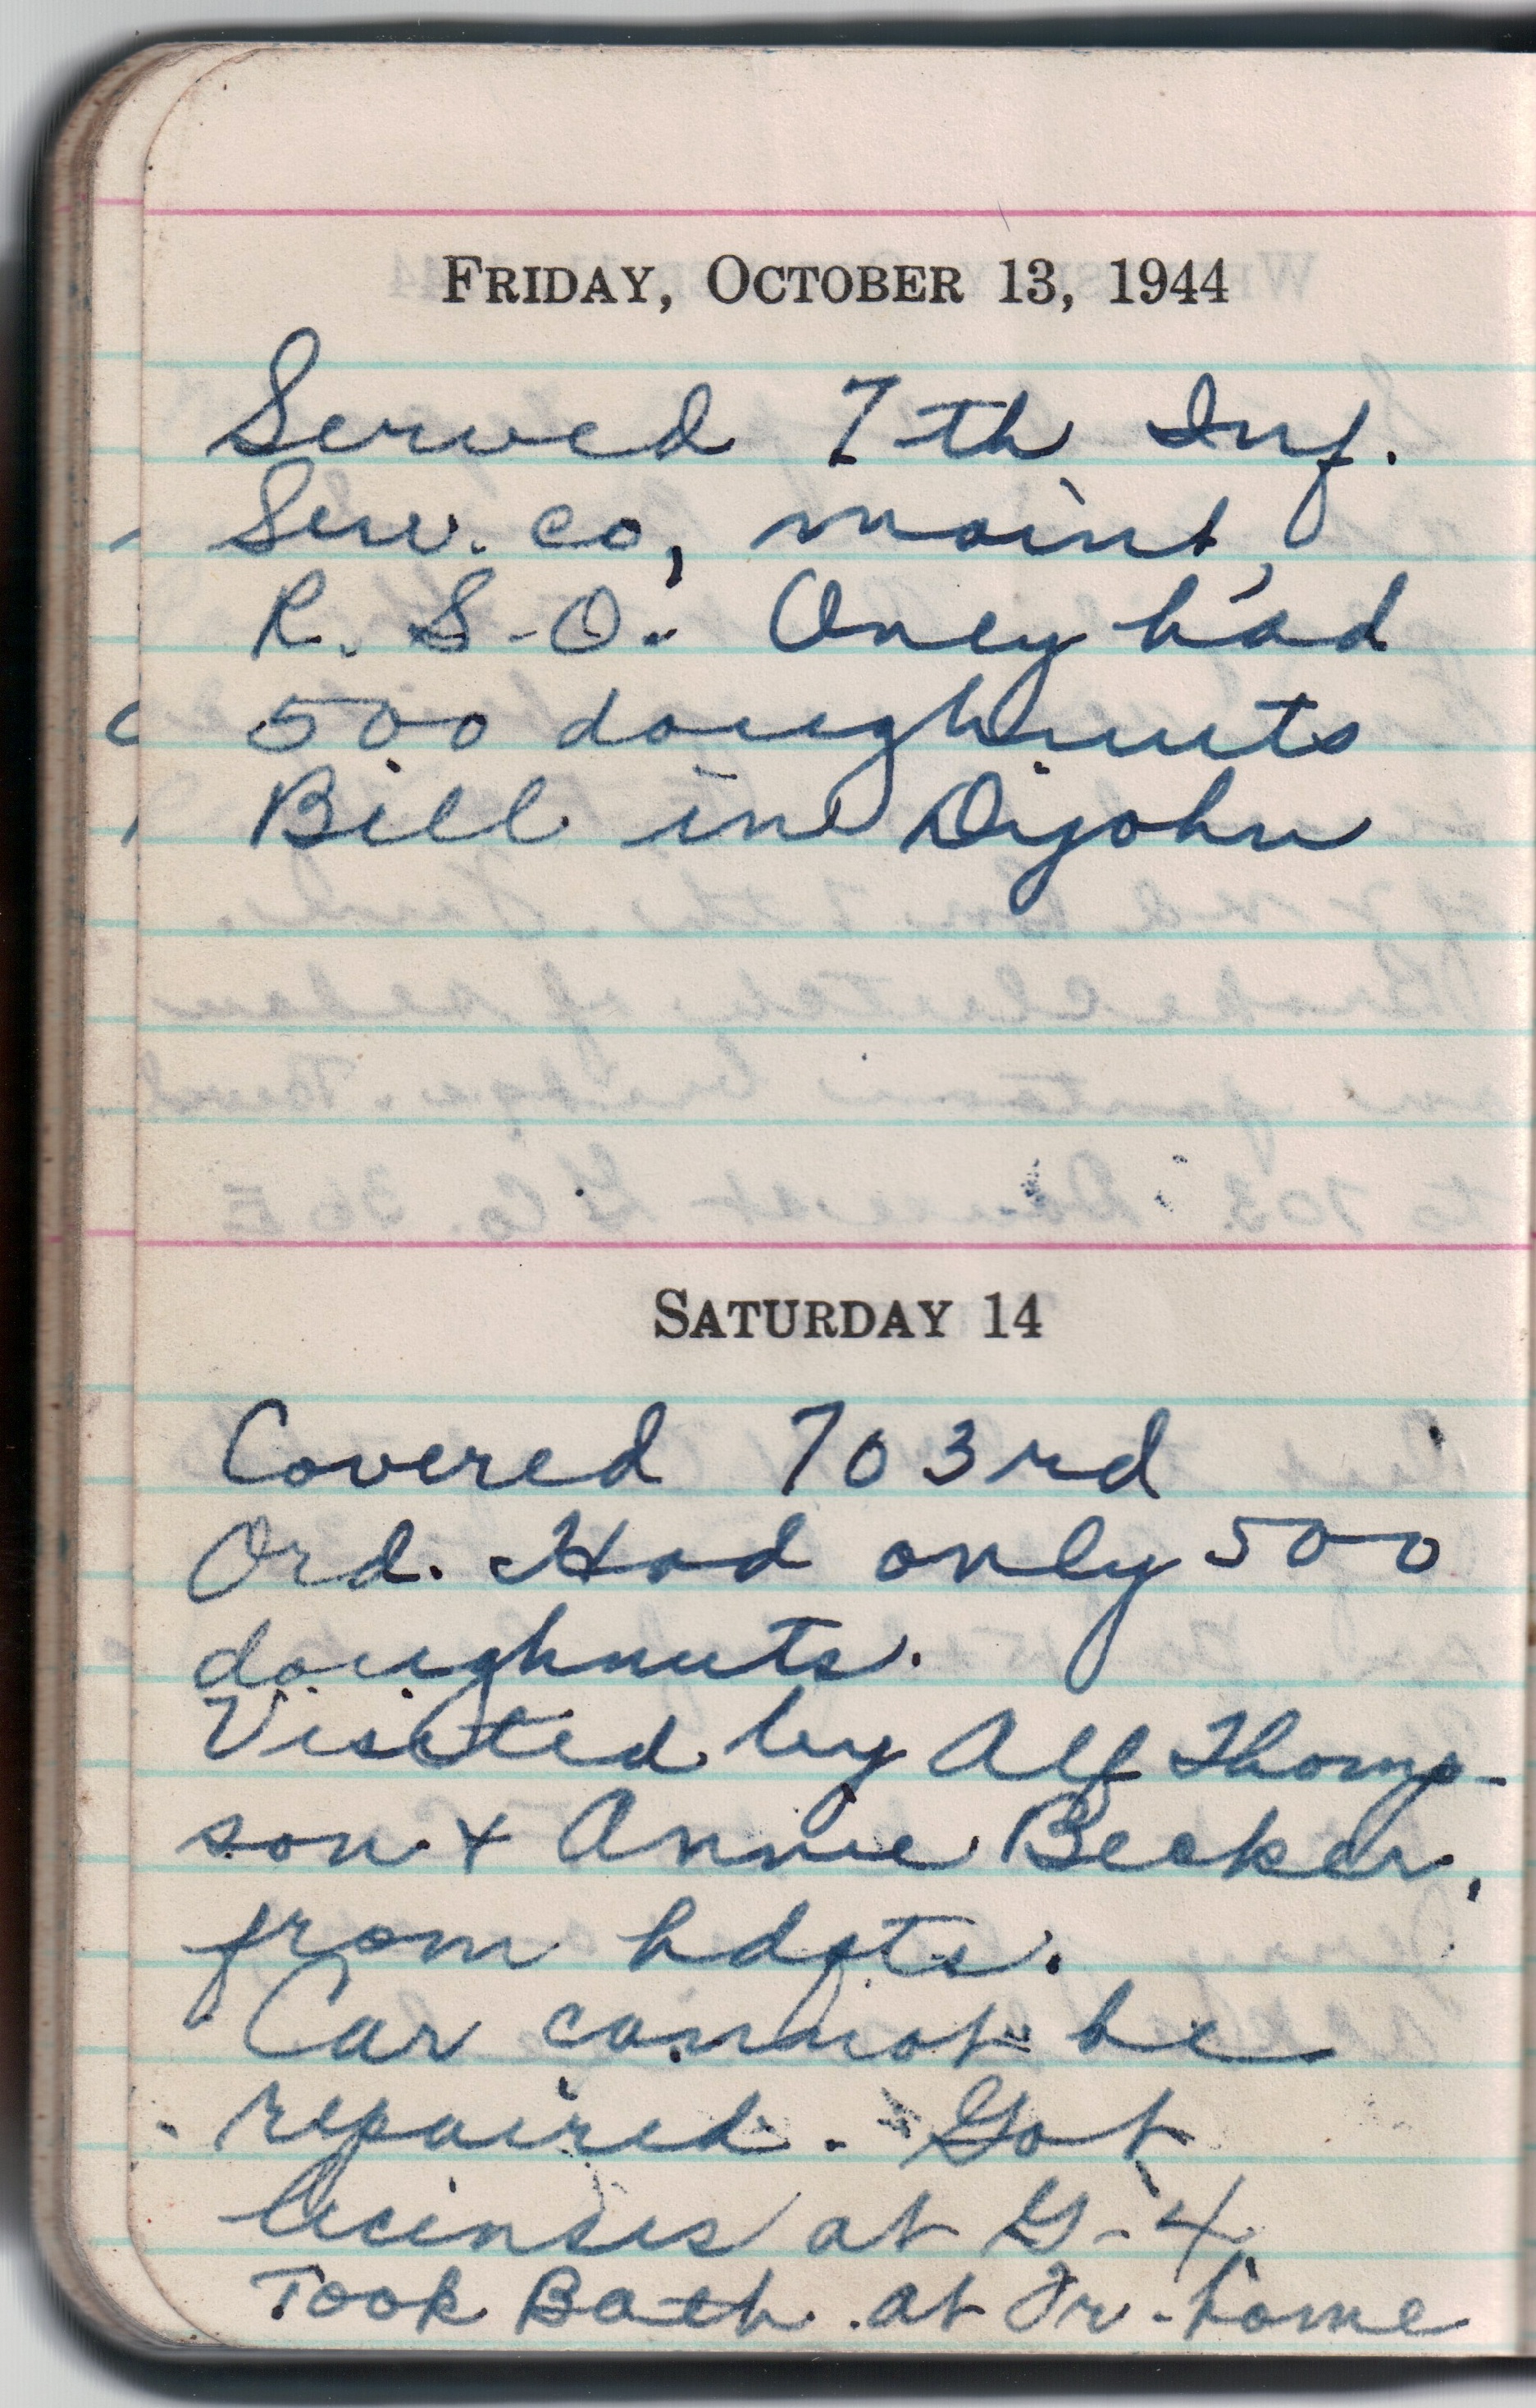 FRIDAY, OCTOBER 13, 1944
Served 7th Inf.
Serv. co, maint,
R. S-O. Only had
500 doughnuts
Bill in Dijohn
SATURDAY 14
Covered 703rd
Ord. Had only 500
doughnuts.
Visited by Alf Thomp-
son & Annie Becker,
from hdqts.
Car cannot be
repaired. Got
licenses at G-4
Took Bath at Fr. home